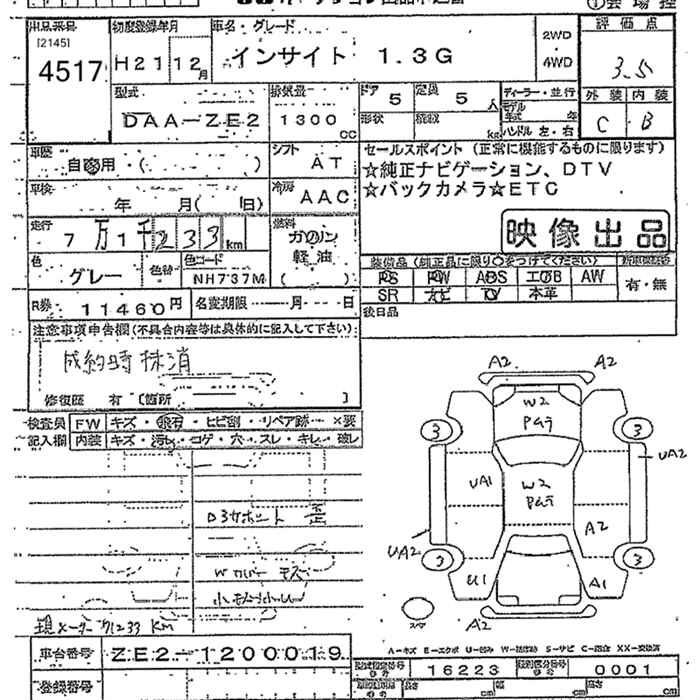 出品番号 初度登録年月 車名・グレード ①会場控
[2145] 評価点
4517 H21 12月 インサイト 1.3G 2WD 4WD 3.5
型式 排気量 ドア 定員 ディーラー・並行 外装 内装
DAA-ZE2 1300 CC 5 5人 モデル年式 年 C B
形状 積載 kg ハンドル 左・右
車歴 シフト セールスポイント (正常に機能するものに限ります)
自家用・( ) AT ☆純正ナビゲーション、DTV
車検 冷房 ☆バックカメラ☆ETC
年 月( 日) AAC
走行 燃料 映像出品
7万1千233km ガソリン
色 色替 色コード 軽油 装備品(純正品に限り○をつけてください)
グレー NH737M ( ) PS PW ABS エアB AW 有・無
SR ナビ TV 本革
R券 11460円 名変期限 月 日 後日品
注意事項申告欄(不具合内容等は具体的に記入して下さい)
成約時抹消
修復歴 有 [箇所 ]
検査員 FW キズ・飛石・ヒビ割・リペア跡・×要
記入欄 内装 キズ・汚れ・コゲ・穴・スレ・キレ・破レ
A2 A2
W2
Pムラ
3 3
UA1 UA2
W2
Pムラ
A2
UA2
3 3
U1 A1
スペア A2
Wカバー キズ
現メーター 71233 Km
A=キズ E=エクボ U=凹み W=補修跡 S=サビ C=腐食 XX=交換済
車台番号 ZE2-1200019 型式指定番号 16223 類別区分番号 0001
登録番号 長さ cm cm cm